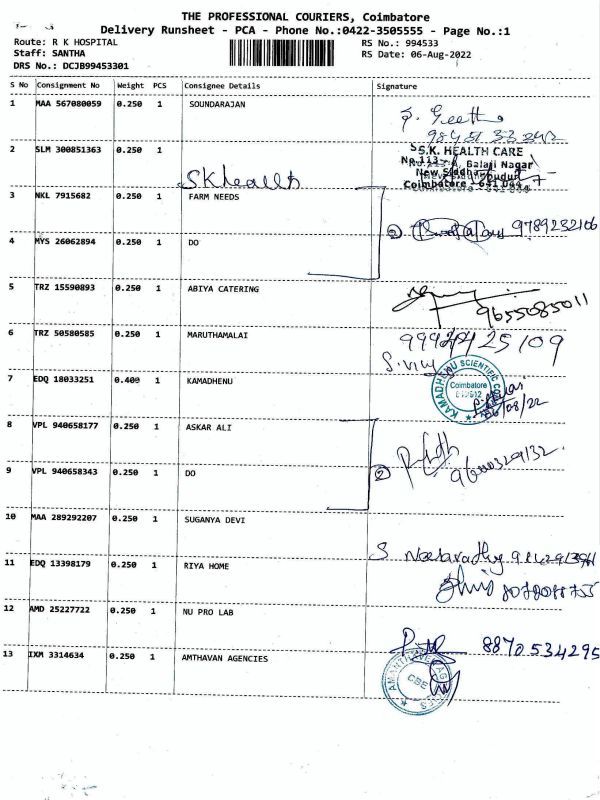 THE PROFESSIONAL COURIERS, Coimbatore
Delivery Runsheet - PCA - Phone No.:0422-3505555 - Page No.:1
Route: R K HOSPITAL RS No.: 994533
Staff: SANTHA RS Date: 06-Aug-2022
DRS No.: DCJB99453301
S No Consignment No Weight PCS Consignee Details Signature
1 MAA 567080059 0.250 1 SOUNDARAJAN
2 SLM 300851363 0.250 1
S.K. HEALTH CARE
Balaji Nagar
Coimbatore - 641 044
SK health
3 NKL 7915682 0.250 1 FARM NEEDS
② 9789232106
4 MYS 26062894 0.250 1 DO
5 TRZ 15590893 0.250 1 ABIYA CATERING
9655085011
6 TRZ 50580585 0.250 1 MARUTHAMALAI
7 EDQ 18033251 0.400 1 KAMADHENU
KAMADHENU SCIENTIFIC
Coimbatore
06/08/22
8 VPL 940658177 0.250 1 ASKAR ALI
② 9600329132
9 VPL 940658343 0.250 1 DO
10 MAA 289292207 0.250 1 SUGANYA DEVI
11 EDQ 13398179 0.250 1 RIYA HOME
12 AMD 25227722 0.250 1 NU PRO LAB
8870534295
13 IXM 3314634 0.250 1 AMTHAVAN AGENCIES
CBE